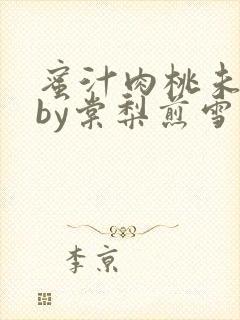 蜜汁肉桃未
by棠梨煎雪
李京